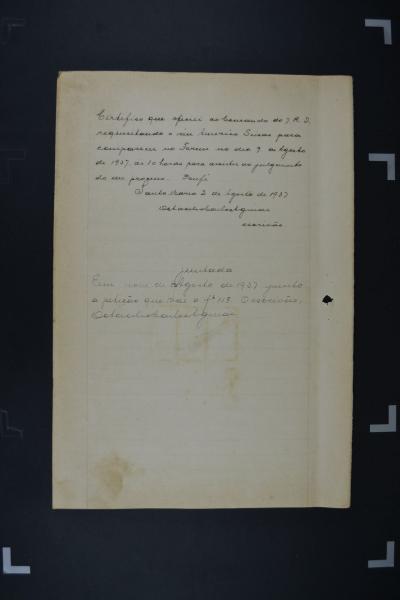 Certifico que oficiei ao Comando do 7. R. I.
requisitando o reu Americo para
comparecer no Forum no dia 9 de Agosto
de 1937, as 10 horas para assistir ao julgamento
do seu processo. Dou fé
Santa Maria 2 de Agosto de 1937
escrivão
Juntada
Em nove de Agosto de 1937 junto
a petição que vai a fª 113. O escrivão,